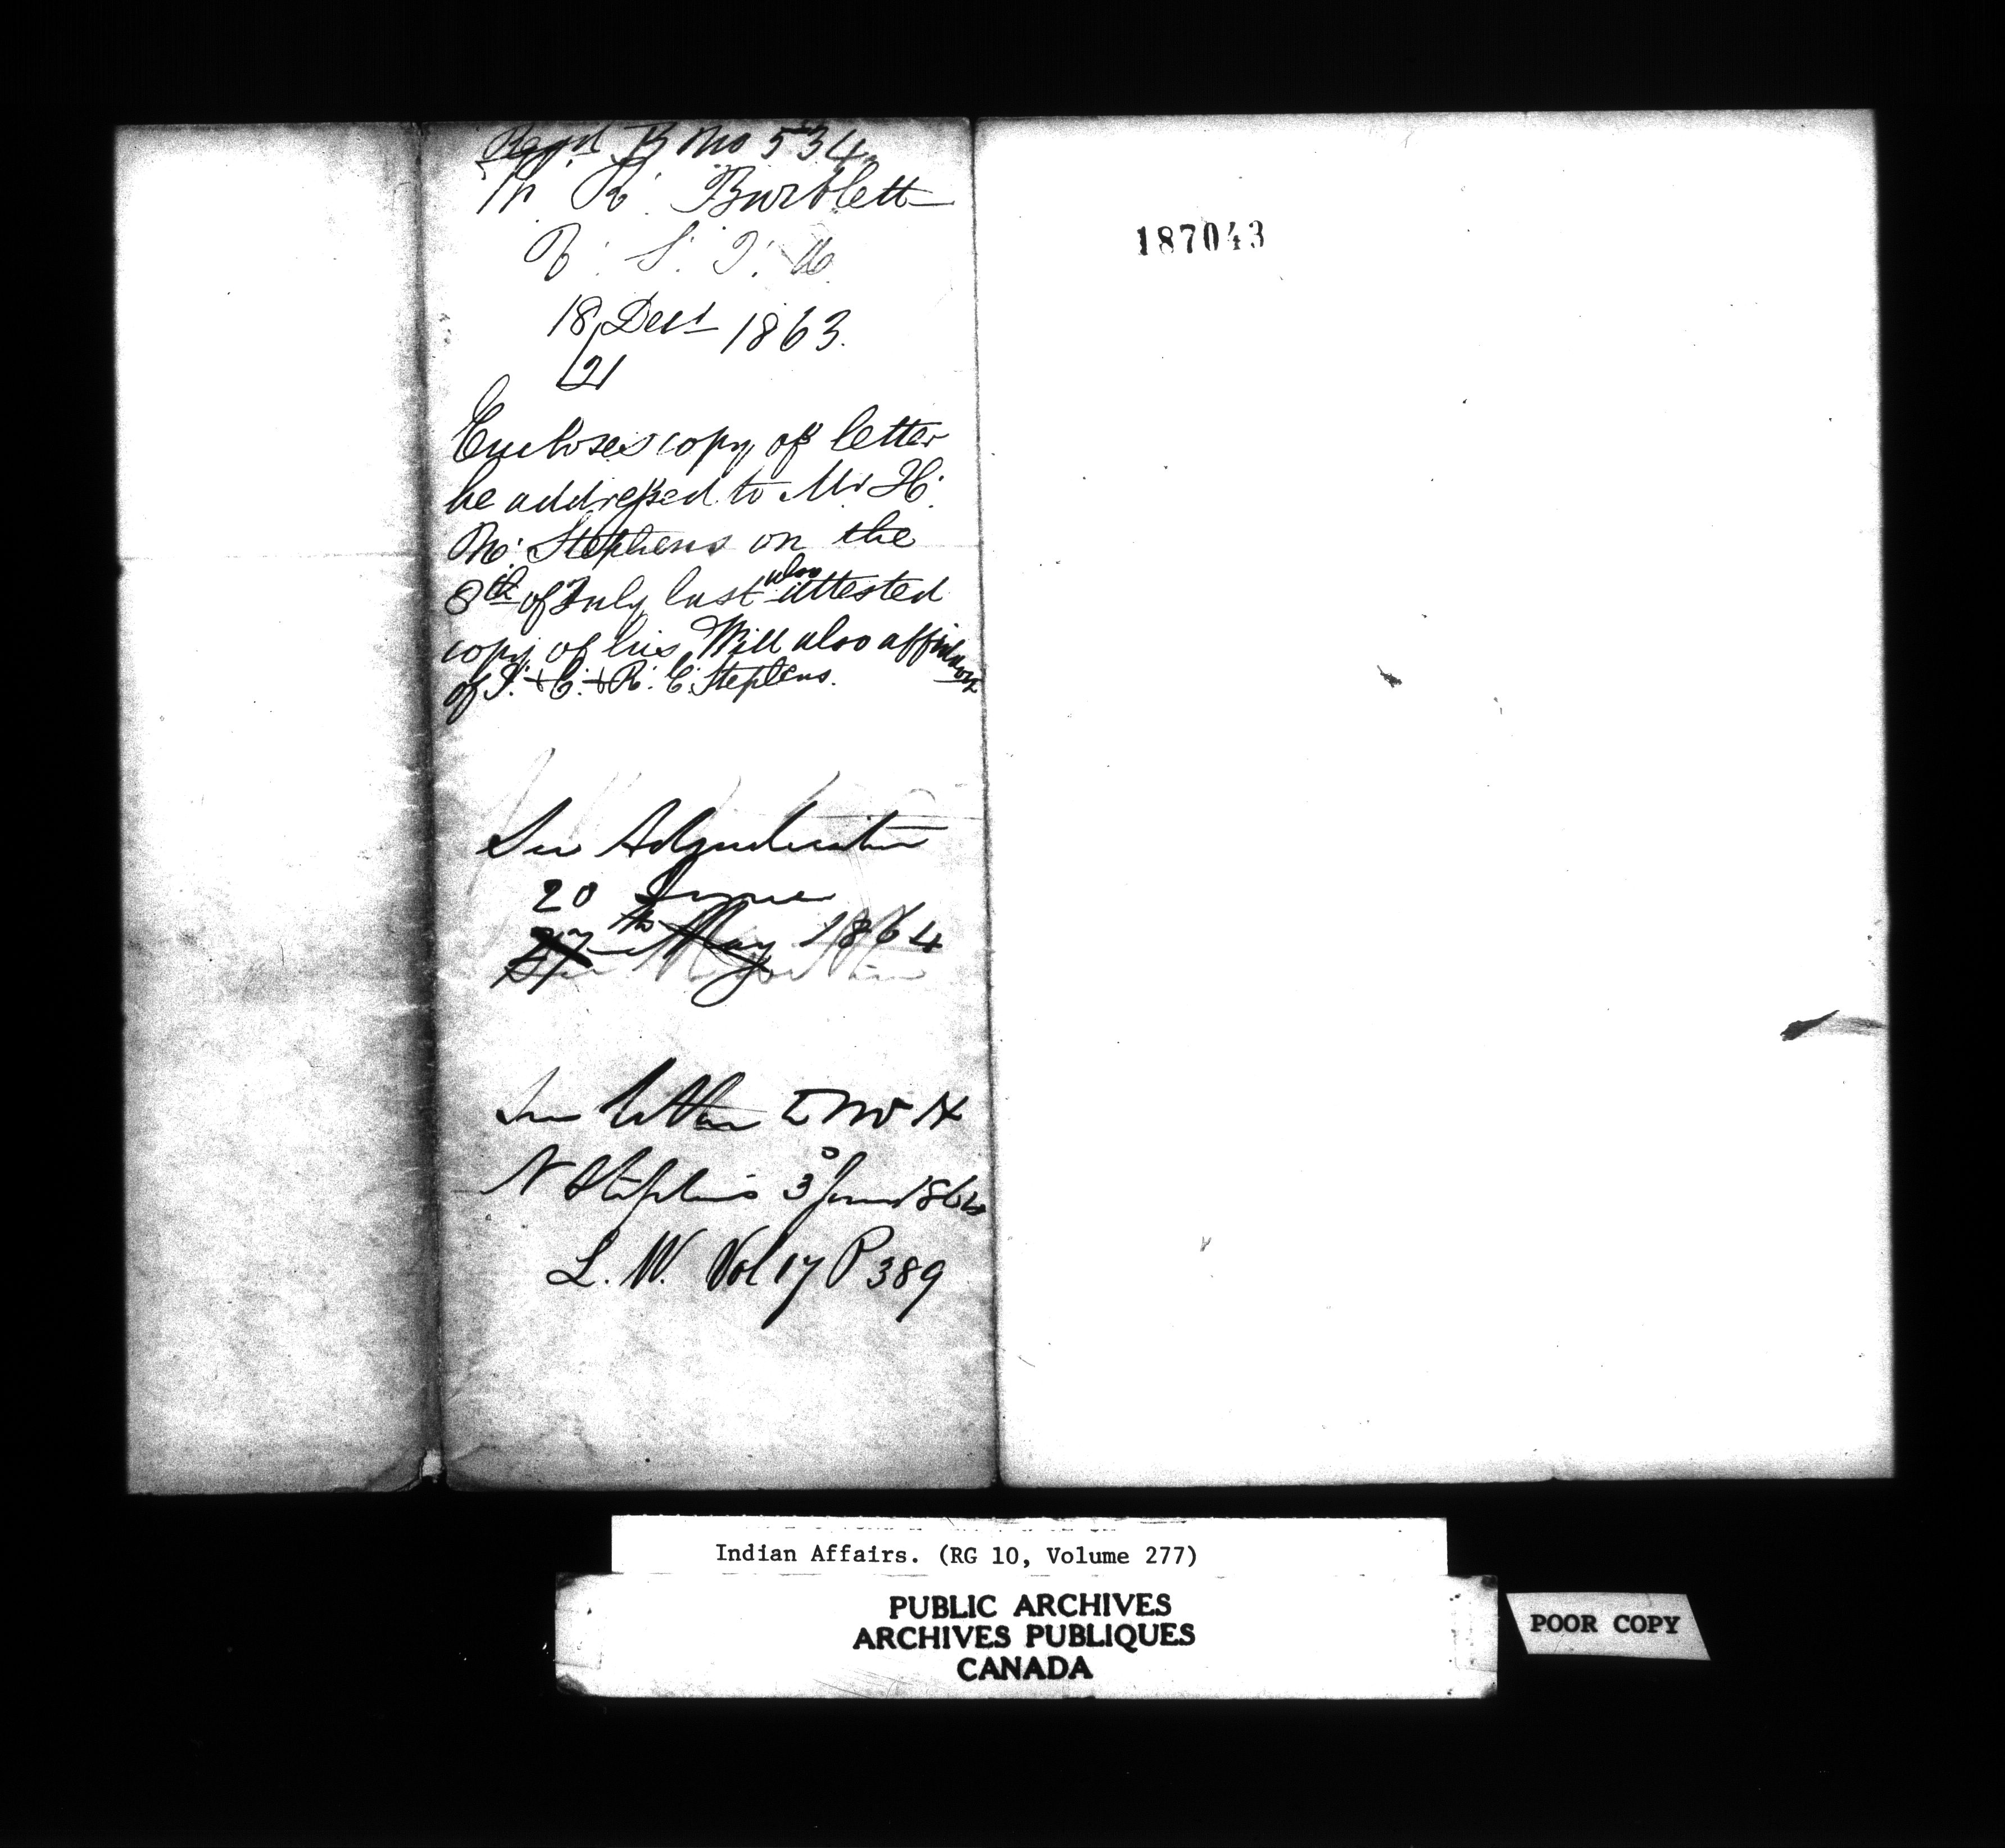 Regd B No 534
W. R. Bartlett
V. S. I. A.
18 Decr 1863.
21
Encloses copy of letter
he addressed to Mr H.
N. Stephens on the
8th of July last also attested
copy of his Will also affidavit
of I. + C. + R. C. Stephens.
See Adjudication
20 June
27th May 1864
See letter to Mr H
N Stephens 3 June 1864
L. W. Vol 17 P 389
187043
Indian Affairs. (RG 10, Volume 277)
PUBLIC ARCHIVES
ARCHIVES PUBLIQUES
CANADA
POOR COPY